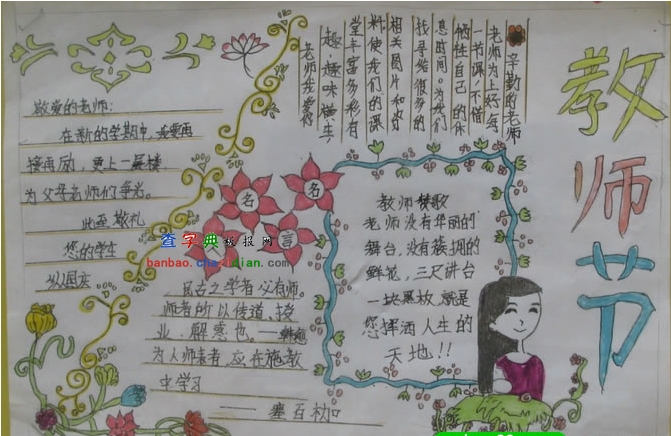 教师节
辛勤的老师
老师为上好每
一节课,不惜
牺牲自己的休
息时间。为我们
找寻给很多的
相关图片和资
料,使我们的课
堂丰富多彩有
趣,趣味横生,
老师我爱你
敬爱的老师:
在新的学期中,我要再
接再励,更上一层楼
为父母老师们争光。
此致敬礼
您的学生
名
人
名
言
查字典板报网
banbao.chazidian.com
民古之学者必有师。
师者所以传道,授
业,解惑也。——韩愈
为人师表者,应在施教
中学习
教师赞歌
老师没有华丽的
舞台,没有簇拥的
鲜花,三尺讲台
一块黑板就是
您挥洒人生的
天地!!